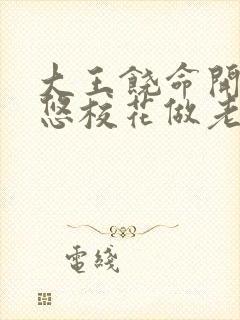 大王饒命開
悠校花做老
電綫